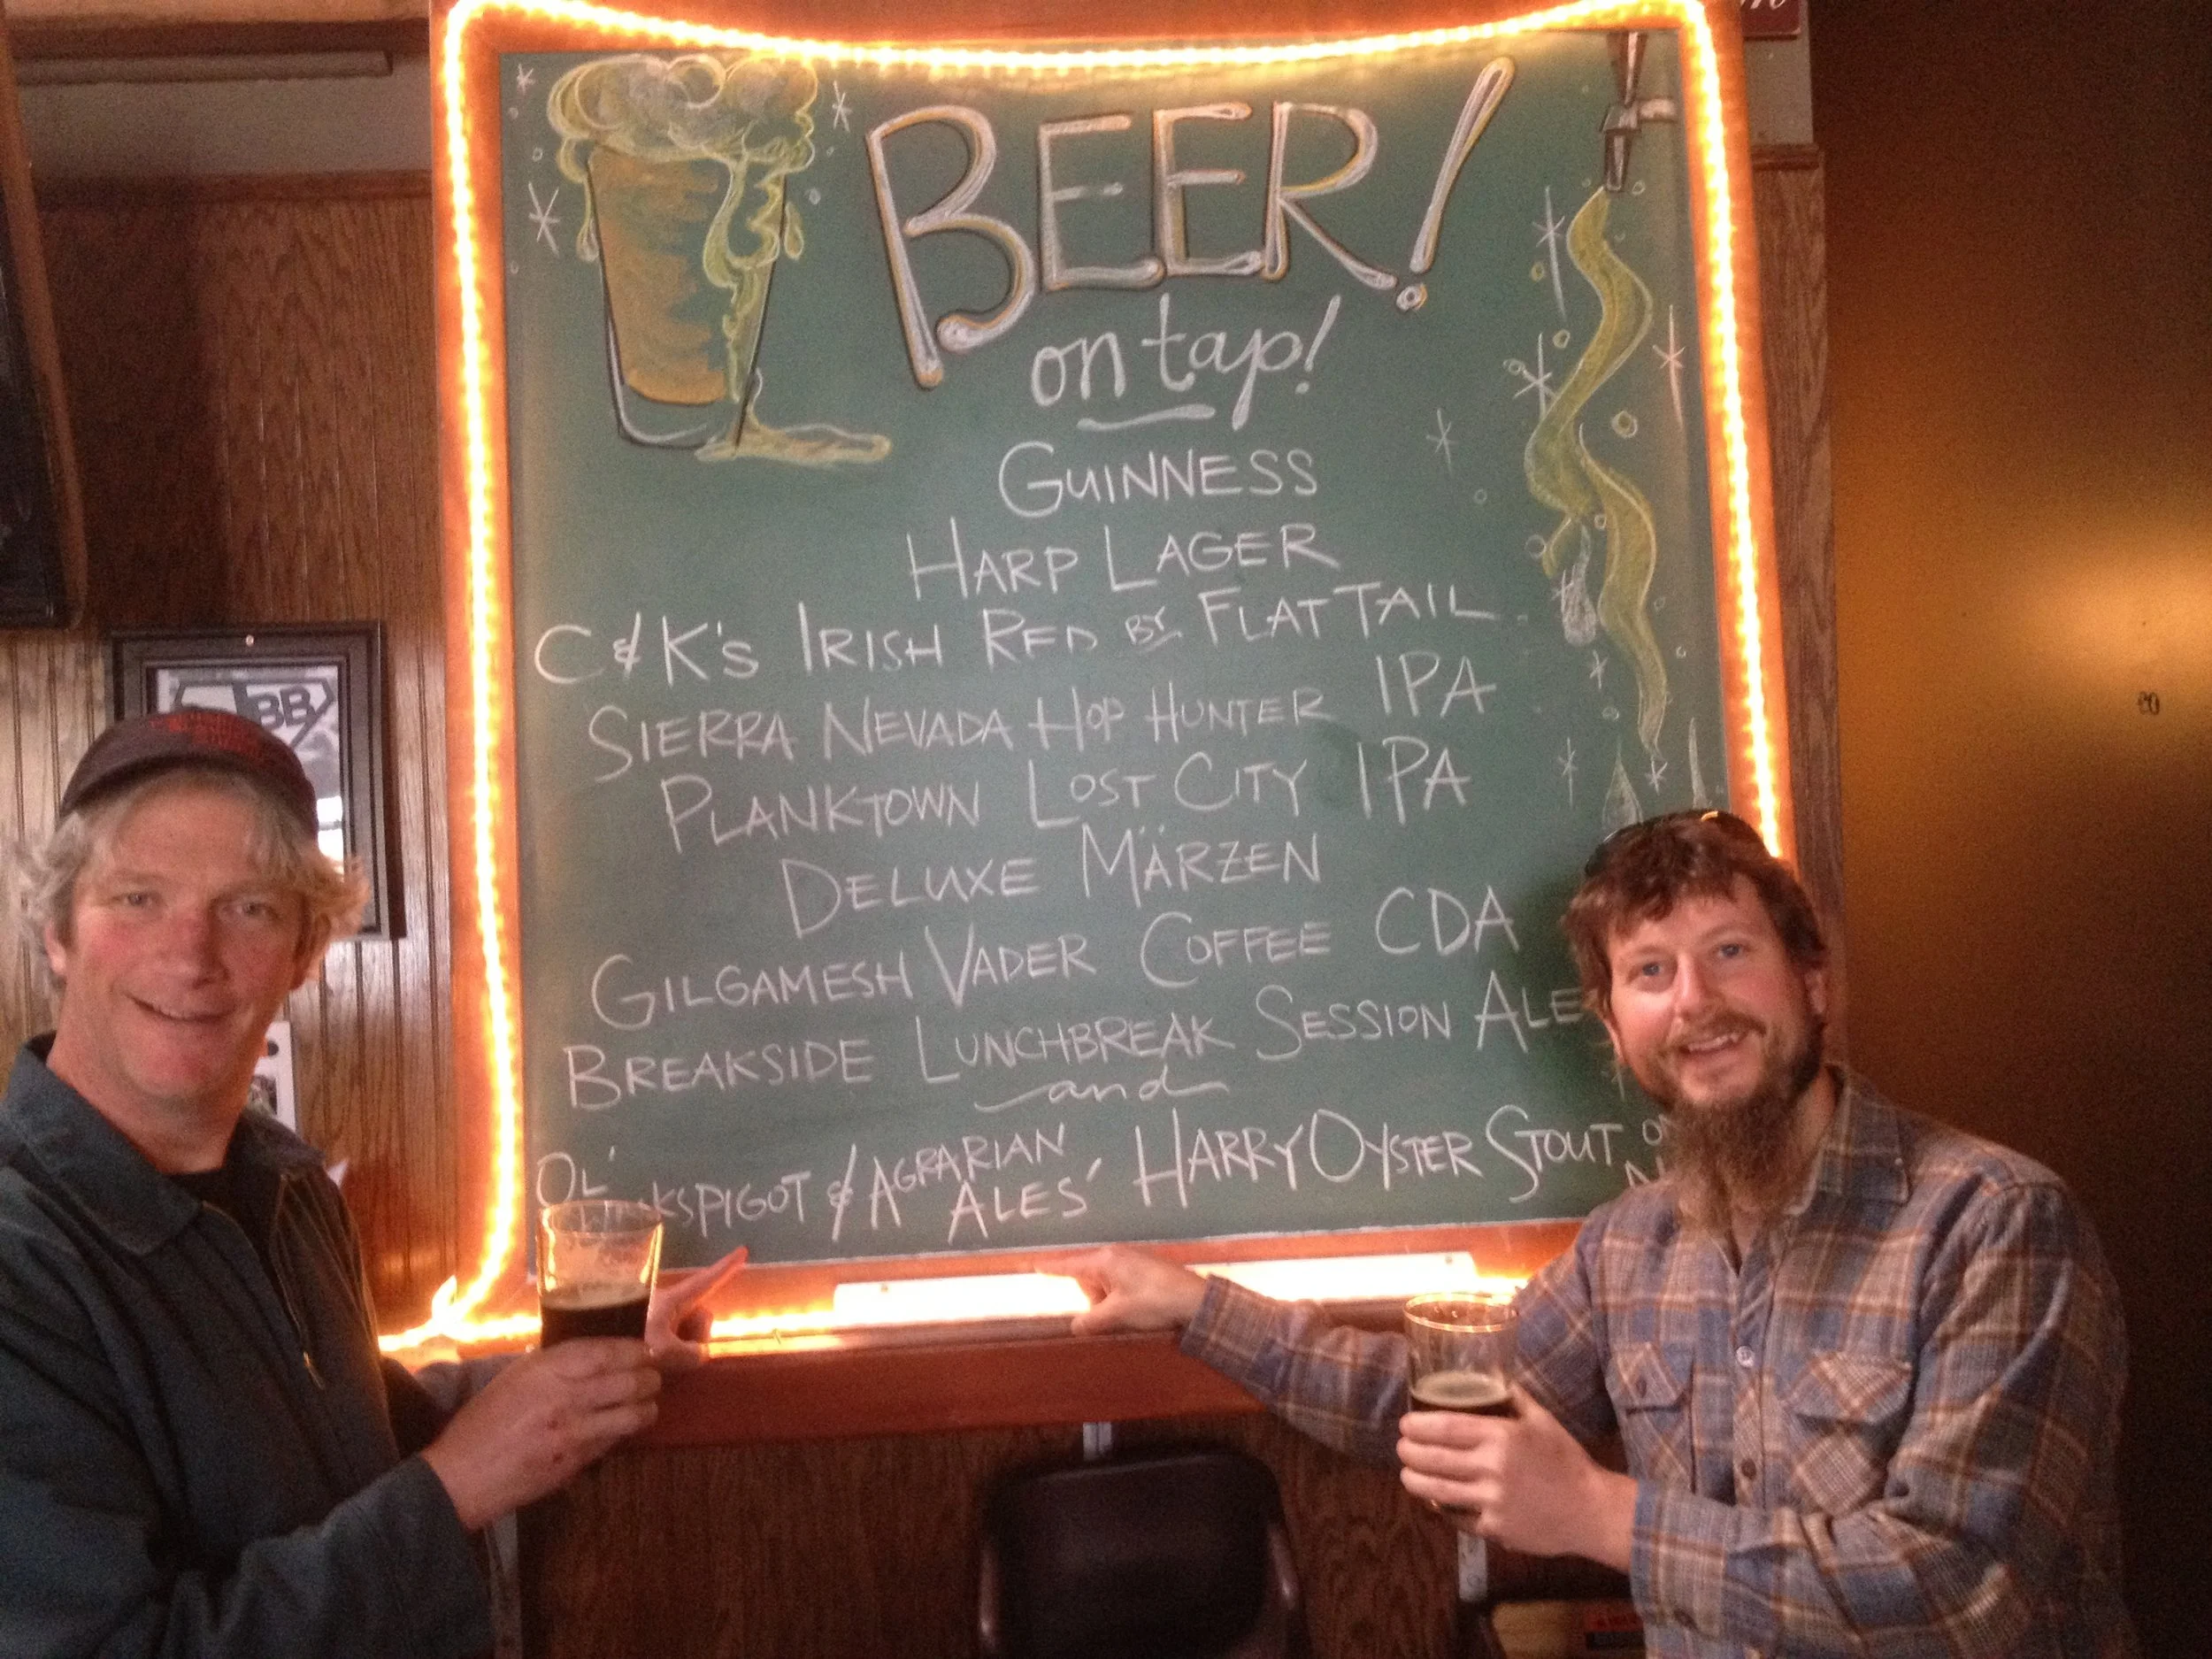 BEER!
on tap!
GUINNESS
HARP LAGER
C&K's IRISH RED BY FLAT TAIL
SIERRA NEVADA HOP HUNTER IPA
PLANKTOWN LOST CITY IPA
DELUXE MÄRZEN
GILGAMESH VADER COFFEE CDA
BREAKSIDE LUNCHBREAK SESSION ALE
and
OL' KSPIGOT & AGRARIAN ALES' HARRY OYSTER STOUT
BB